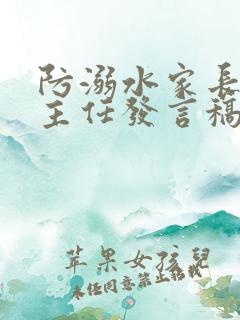 防溺水家長
主任發言稿
苹果女孩兒
未经同意禁止转载